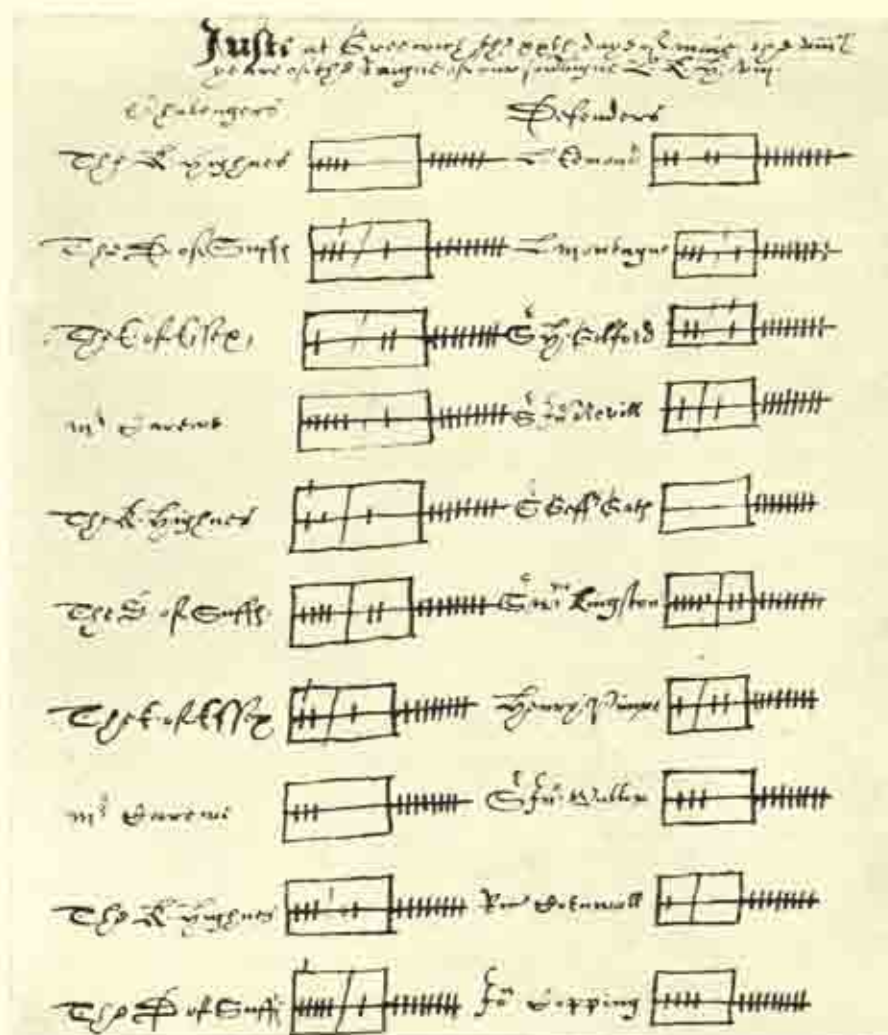 Justs at Grenewich the xxth daye of maie the viiith
yeare of the Raigne of our soveraigne L K H viii
Chalengers Defenders
The K highnes L Edmond
The D of Suff L montague
The E of Essex Sr H Gilford
mr Carewe Sr Jn Nevill
The K highnes Sr Geff Gats
The D of Suff Sr Wm Kingston
The E of Essex Henry
mr Carewe Sr Jn Wallop
The K highnes Cornwall
The D of Suff Jn Copping